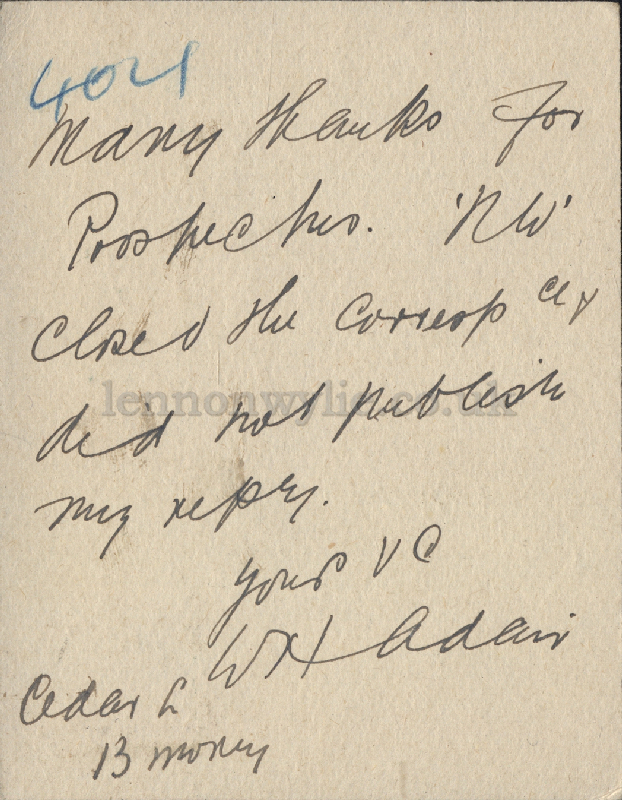 404
Many thanks for
Prospectus. 'NW'
closed the corresp cey
did not publish
my reply.
Yours V C
WH Adair
Cedar L
B money
lennonwylie.co.uk